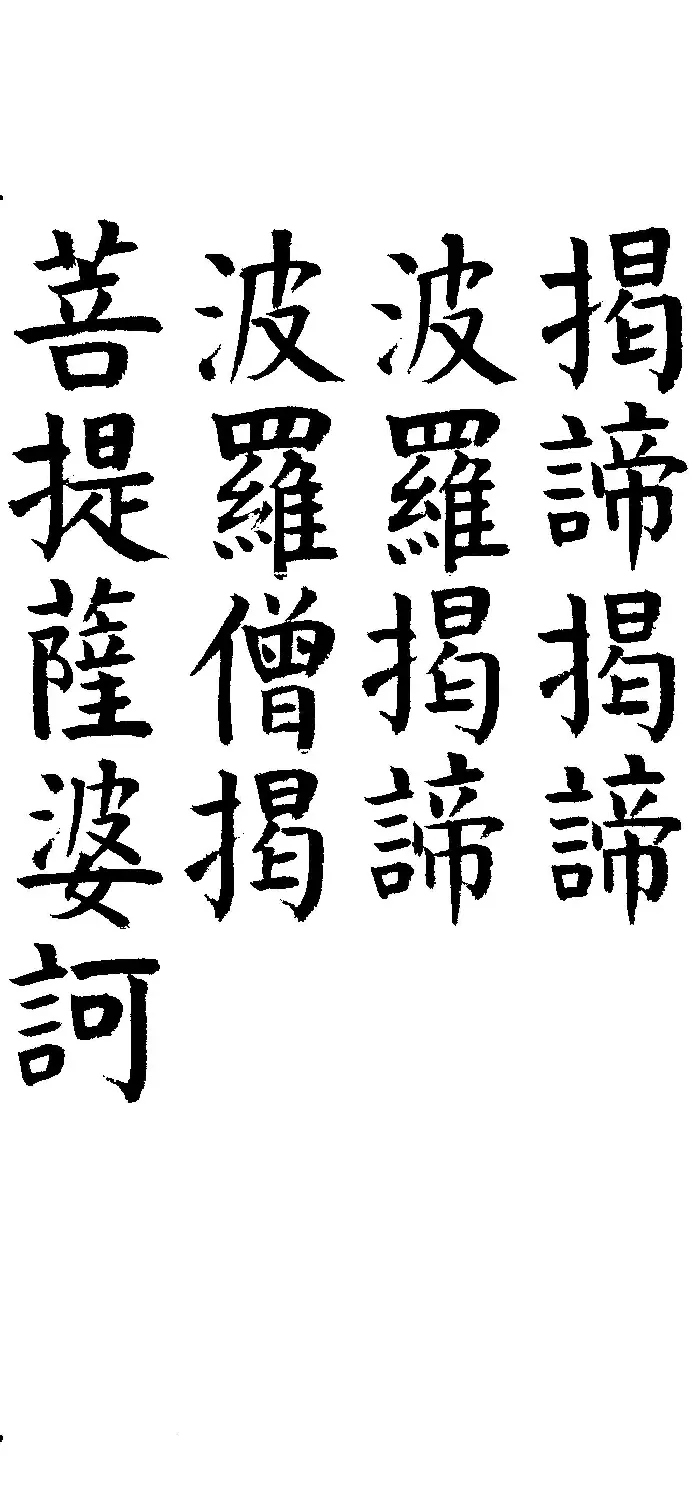 揭諦揭諦
波羅揭諦
波羅僧揭
菩提薩婆訶